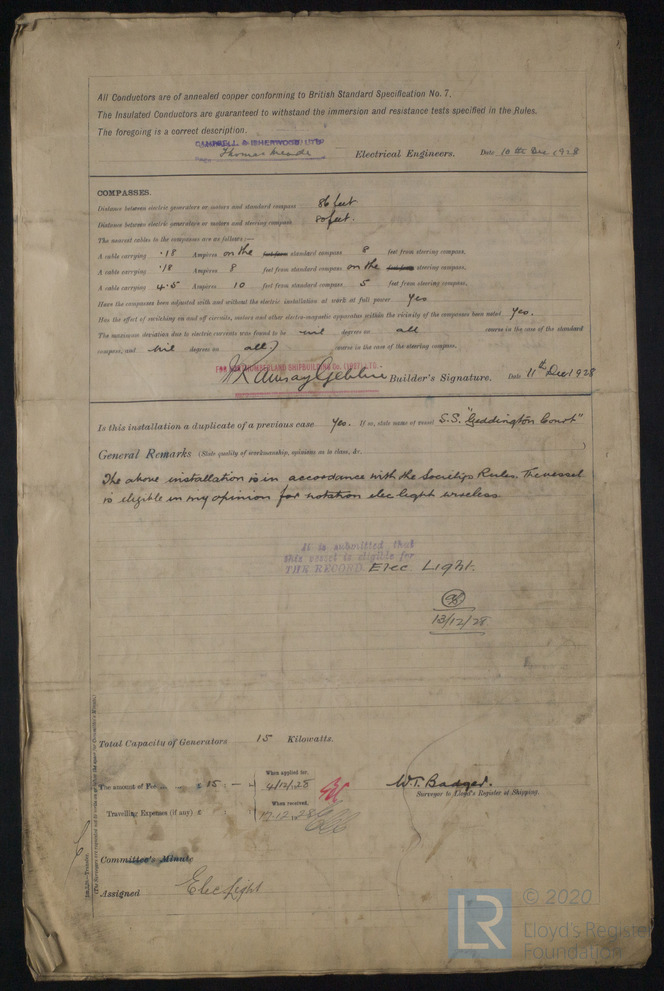 All Conductors are of annealed copper conforming to British Standard Specification No. 7.
The Insulated Conductors are guaranteed to withstand the immersion and resistance tests specified in the Rules.
The foregoing is a correct description.
CAMPBELL & ISHERWOOD LTD
Thomas Meade Electrical Engineers. Date 10th Dec 1928
COMPASSES.
Distance between electric generators or motors and standard compass 86 feet
Distance between electric generators or motors and steering compass 80 feet.
The nearest cables to the compasses are as follows:—
A cable carrying .18 Ampères on the feet from standard compass 8 feet from steering compass.
A cable carrying .18 Ampères 8 feet from standard compass on the feet from steering compass.
A cable carrying 4.5 Ampères 10 feet from standard compass 5 feet from steering compass.
Have the compasses been adjusted with and without the electric installation at work at full power Yes
Has the effect of switching on and off circuits, motors and other electro-magnetic apparatus within the vicinity of the compasses been noted Yes.
The maximum deviation due to electric currents was found to be nil degrees on all course in the case of the standard
compass; and nil degrees on all course in the case of the steering compass.
FOR NORTHUMBERLAND SHIPBUILDING Co. (1927) LTD.
Ramsay Gebbie Builder's Signature. Date 11th Dec 1928
Is this installation a duplicate of a previous case Yes. If so, state name of vessel S.S. "Geddington Court"
General Remarks (State quality of workmanship, opinions as to class, &c.)
The above installation is in accordance with the Societys Rules. The vessel
is eligible in my opinion for notation elec light wireless.
It is submitted that
this vessel is eligible for
THE RECORD. Elec Light.
13/12/28
Total Capacity of Generators 15 Kilowatts.
The amount of Fee £ 15 : - : When applied for, 4/12/28
W.T. Badger.
Surveyor to Lloyd's Register of Shipping.
Travelling Expenses (if any) £ When received, 17.12.28
Committee's Minute
Assigned Elec Light
LR © 2020
Lloyd's Register
Foundation